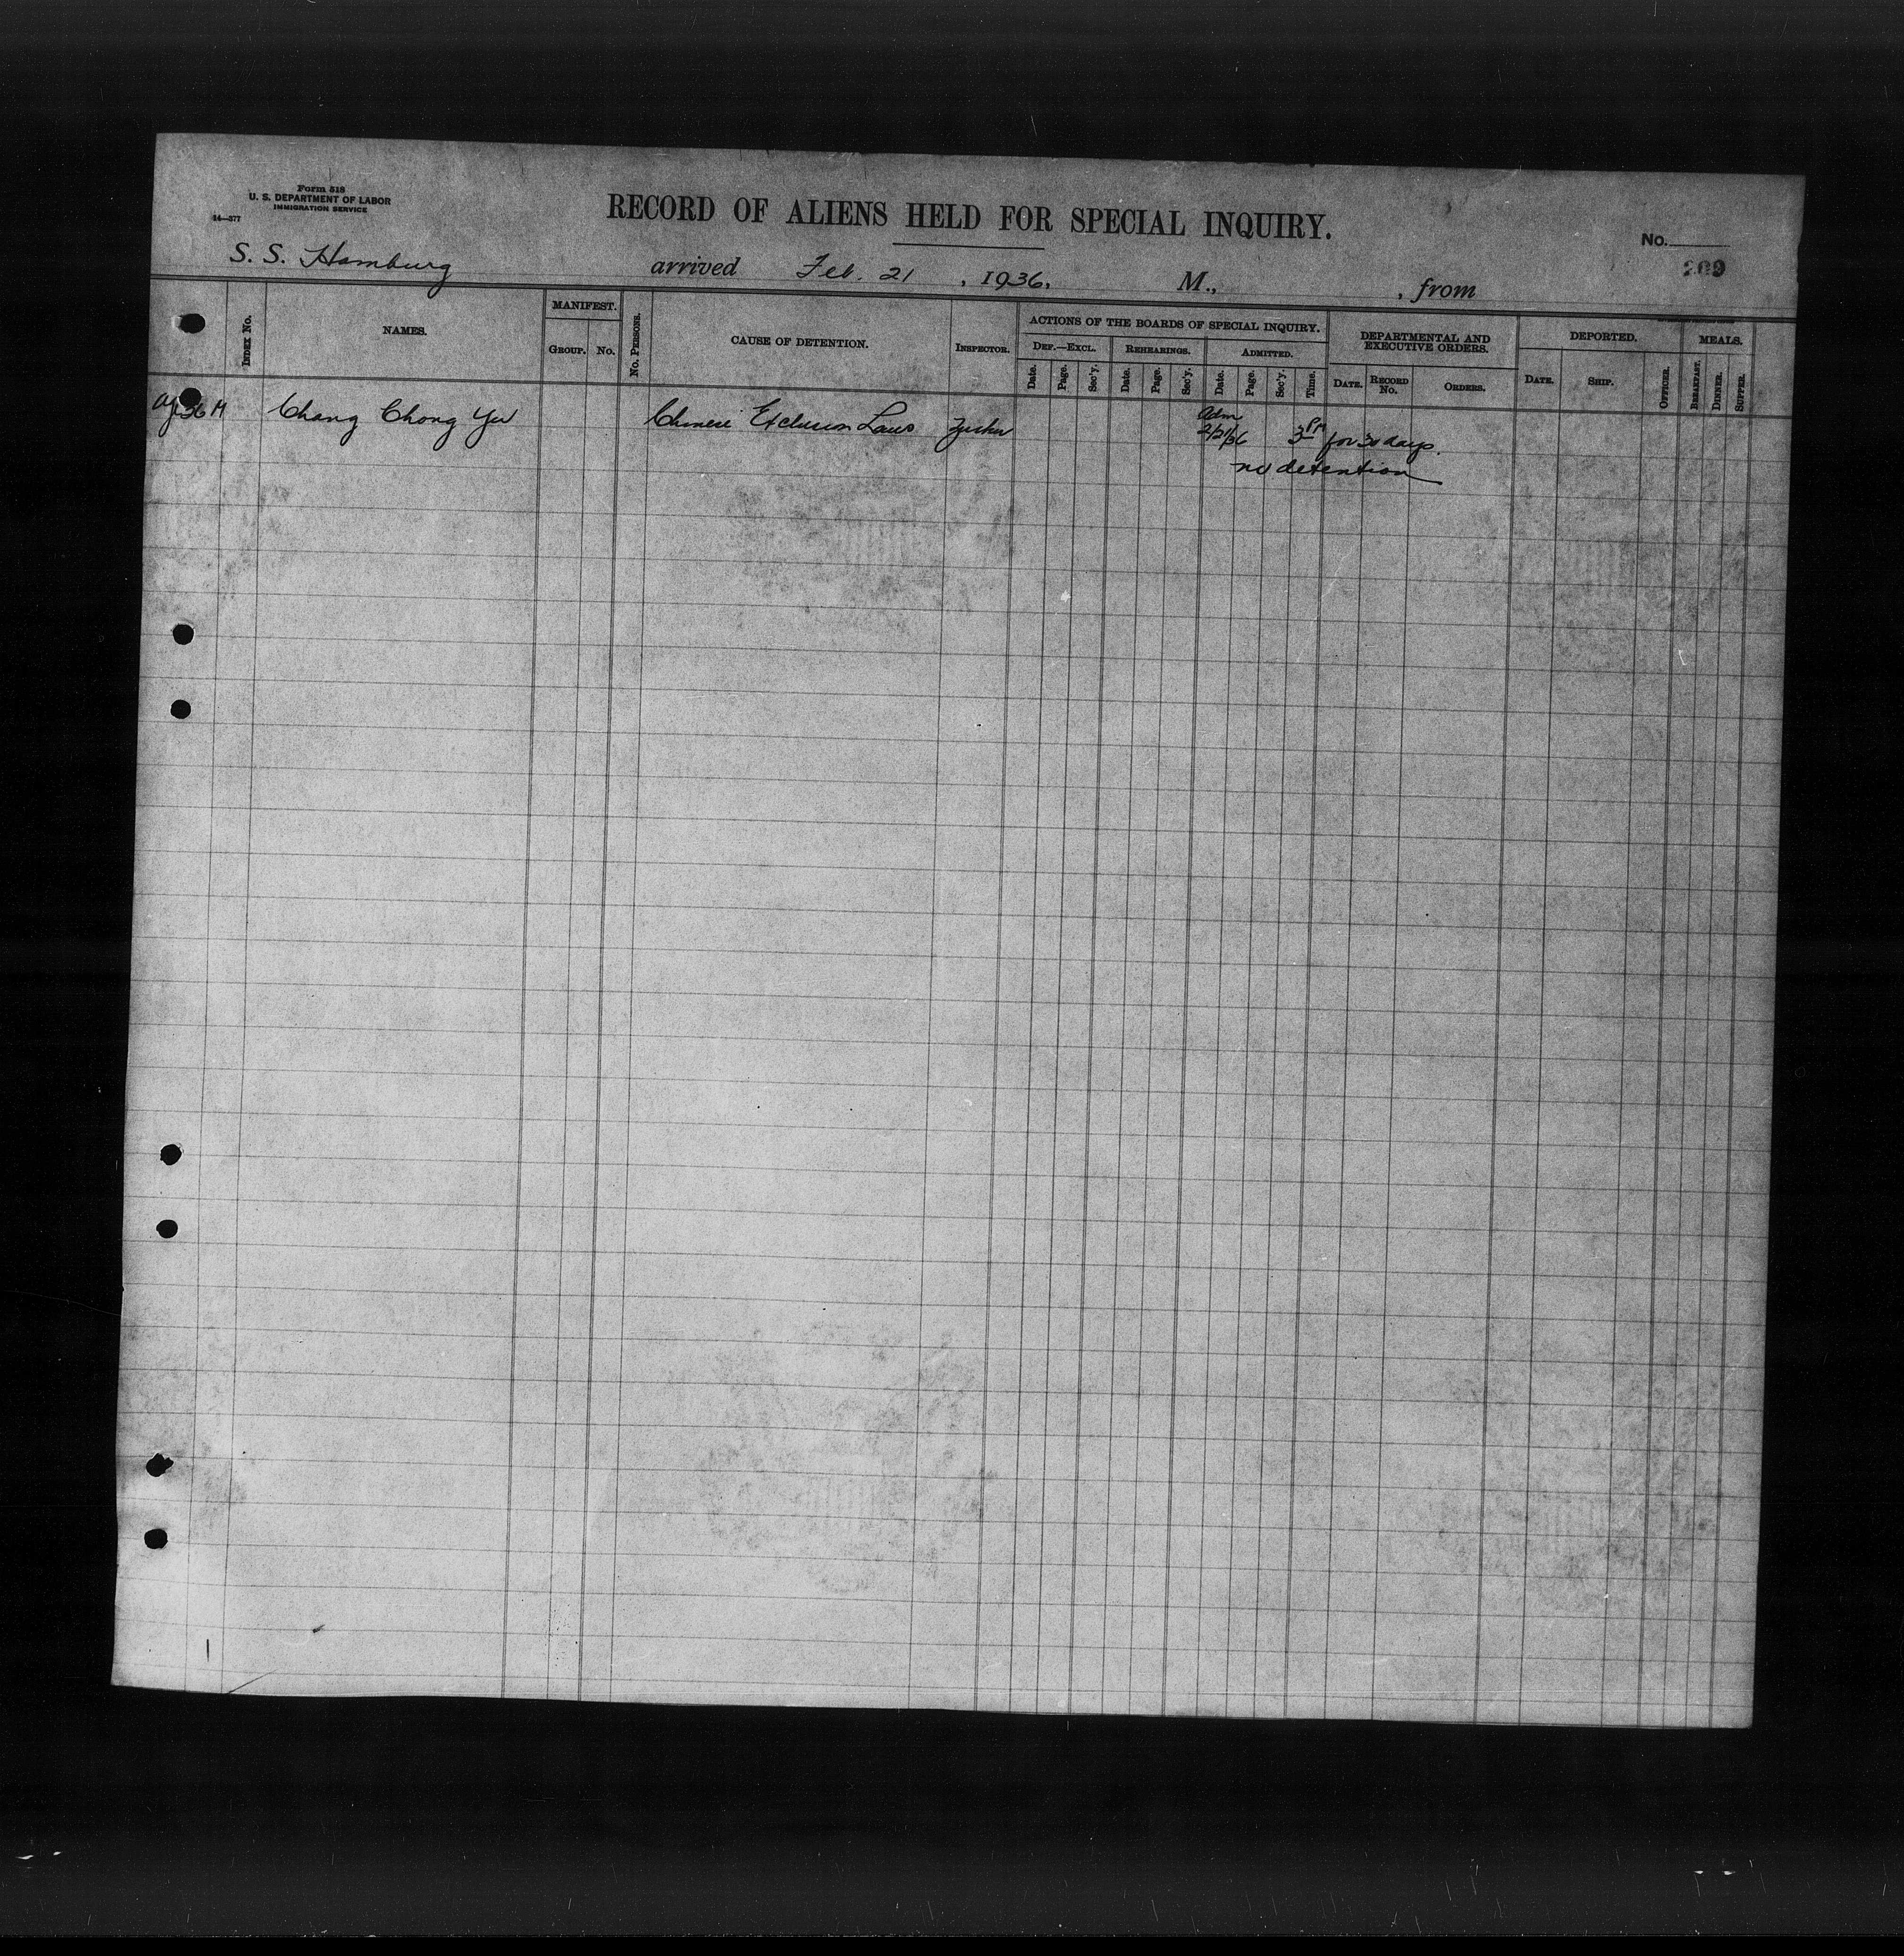 Form 518
U. S. DEPARTMENT OF LABOR
IMMIGRATION SERVICE
14—377
RECORD OF ALIENS HELD FOR SPECIAL INQUIRY.
No.
209
S. S. Hamburg arrived Feb. 21, 1936, M., , from
INDEX No.
NAMES.
MANIFEST.
GROUP. No.
No. PERSONS.
CAUSE OF DETENTION.
INSPECTOR.
ACTIONS OF THE BOARDS OF SPECIAL INQUIRY.
DEF.—EXCL. REHEARINGS. ADMITTED.
Date. Page. Sec'y. Date. Page. Sec'y. Date. Page. Sec'y. Time.
DEPARTMENTAL AND
EXECUTIVE ORDERS.
DATE. RECORD No. ORDERS.
DEPORTED.
DATE. SHIP. OFFICER.
MEALS.
BREAKFAST. DINNER. SUPPER.
Chang Chong Yu Chinese Exclusion Laws Adm 2/21/36 3 PM for 30 days.
no detention